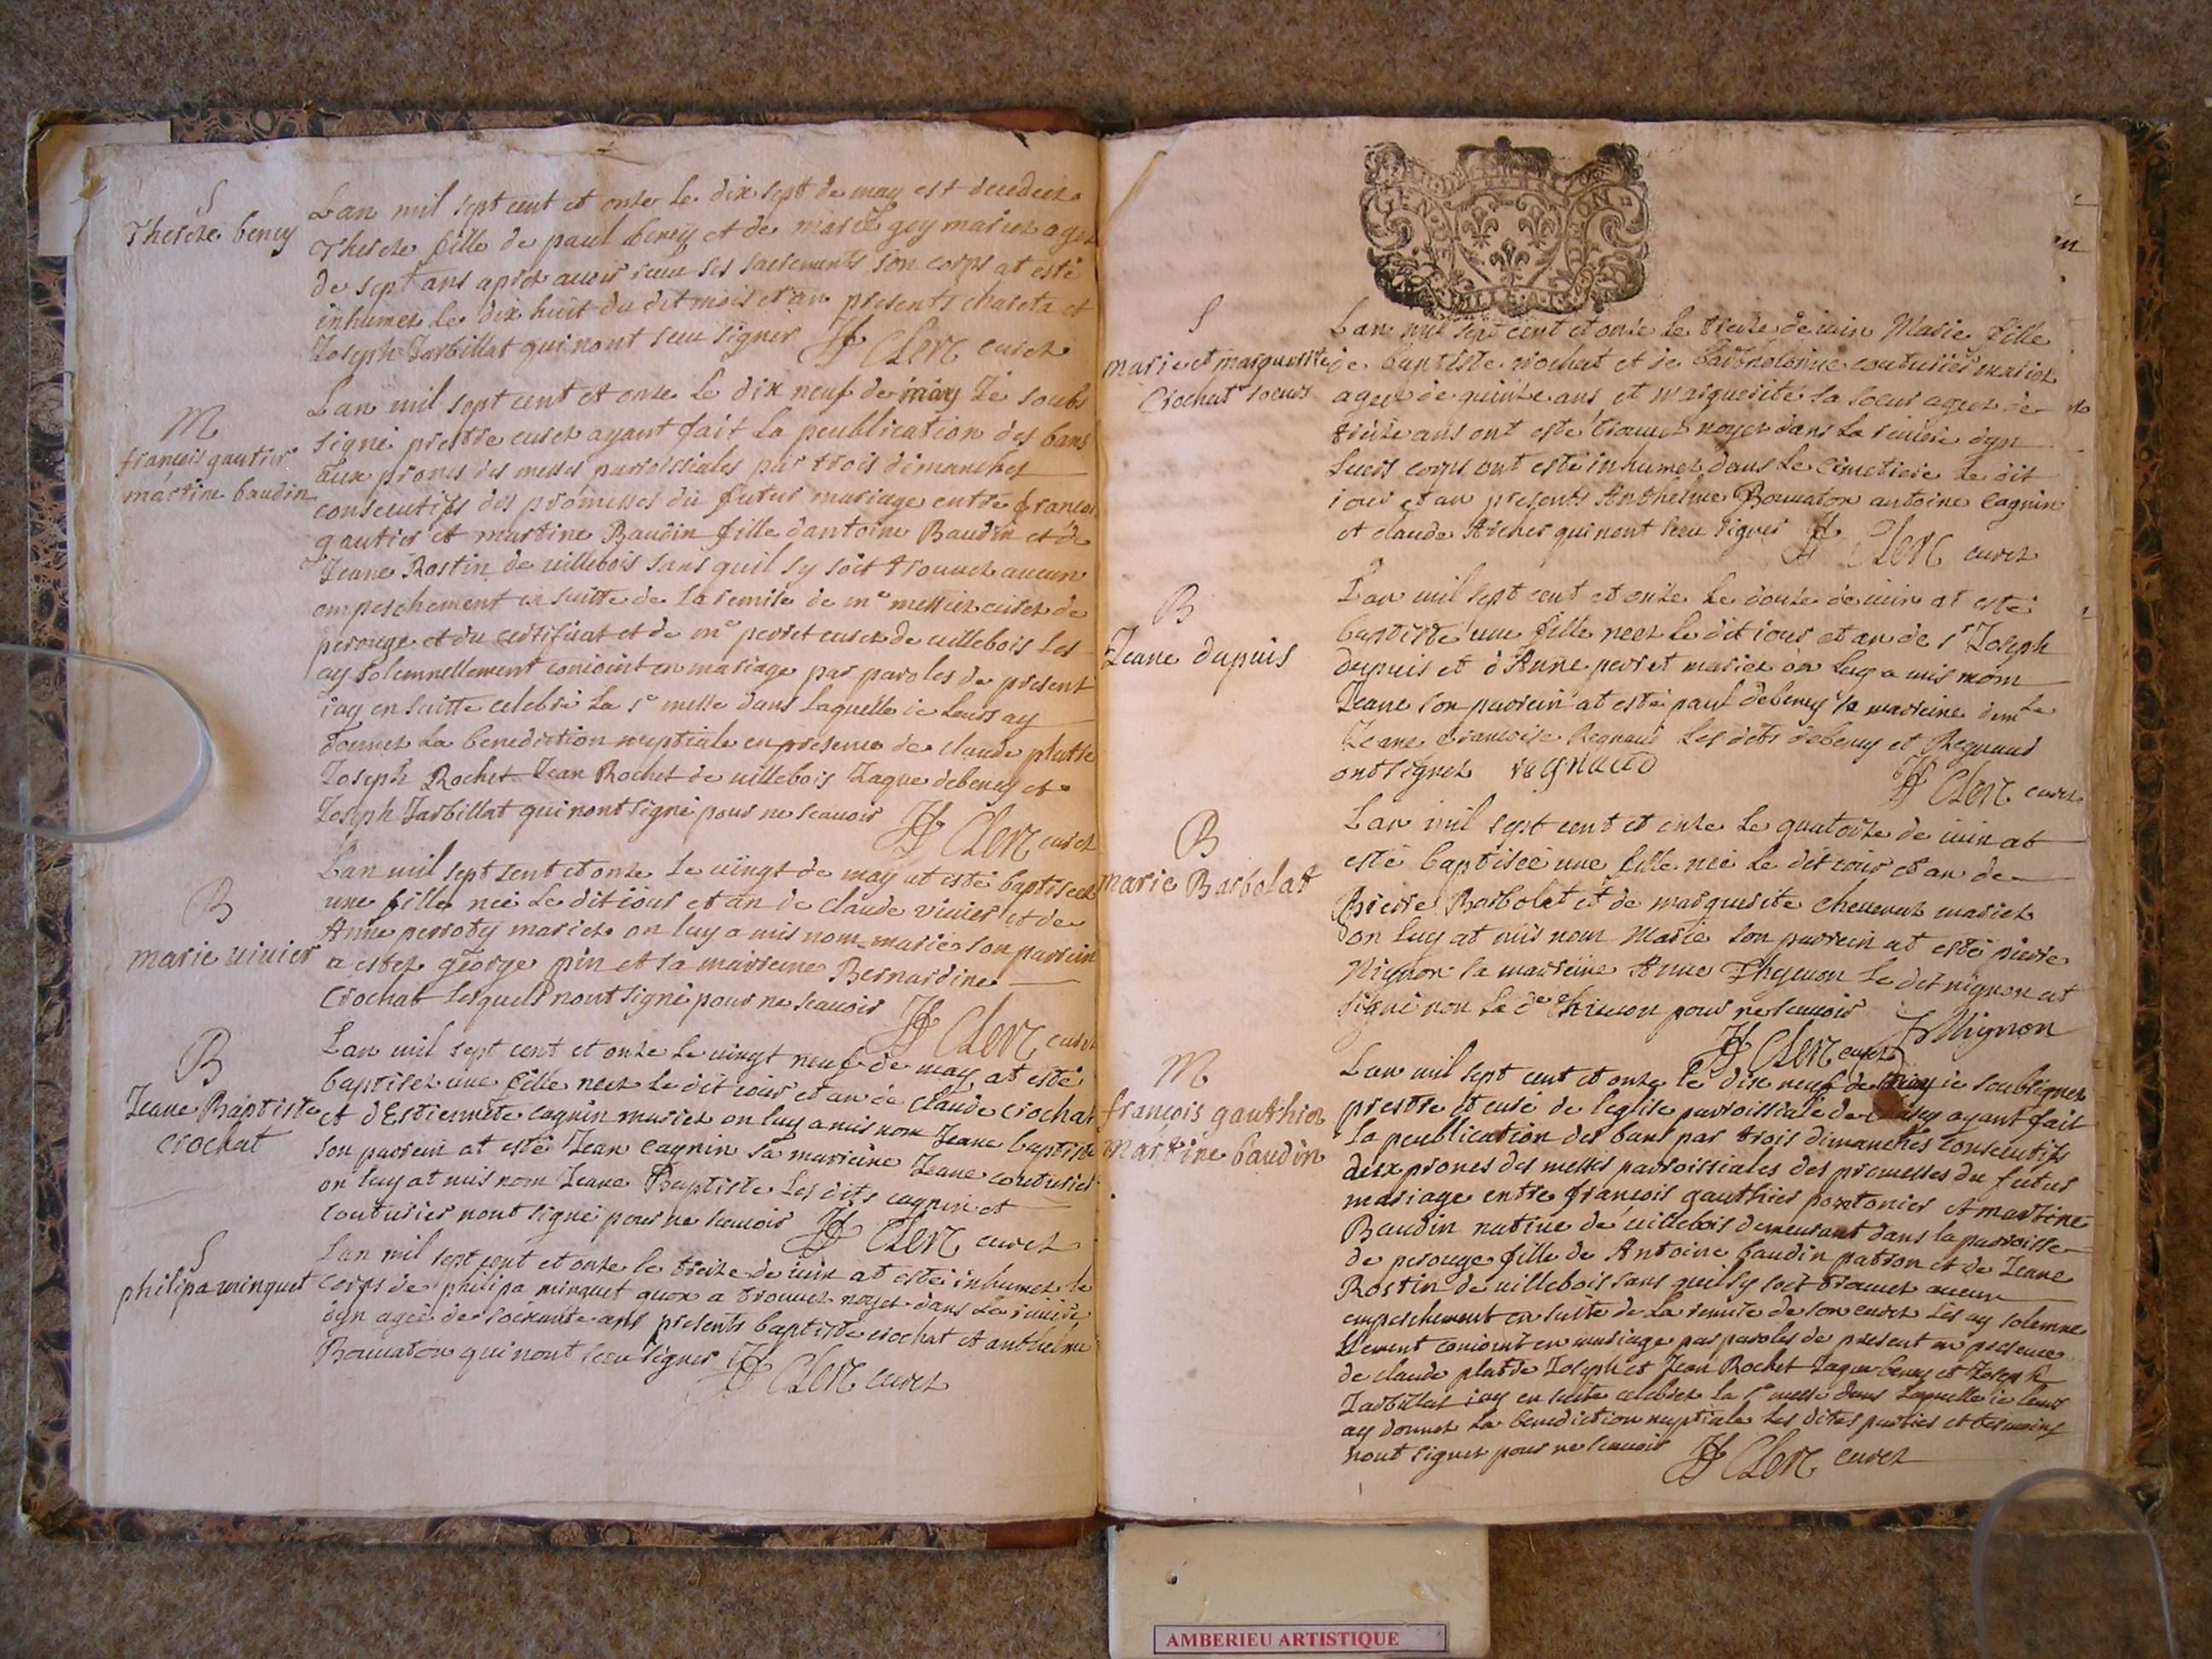 S
Thereze beney
Lan mil sept cent et onze le dix sept de may est decedeez
Thereze fille de paul beney et de marie goy mariez agez
de sept ans apres avoir receu ses sacrements son corps at esté
inhumez le dix huit du dit mois et an presents et
Joseph Jarbillat qui nont sceu signer JF Clerc curez
M
françois gautier
martine baudin
Lan mil sept cent et onze le dix neuf de may Je soubs
signé prestre curez ayant fait la peublication des bans
aux prones des messes parroissiales par trois dimanches
consecutifs des promesses du futur mariage entre françois
gautier et martine Baudin fille dantoine Baudin et de
Jeane Rostin de villebois sans quil sy soit trouvez aucun
empeschement en suitte de la remise de mre messier curez de
perouge et du certificat et de mre perret curez de villebois les
ay solemnellement conioint en mariage par paroles de present
iay en suitte celebré la ste messe dans laquelle ie leurs ay
donnez la benediction nuptiale en presence de claude platre
Joseph Rochet Jean Rochet de villebois Jaque debeney et
Joseph Jarbillat qui nont signé pour ne scavoir JF Clerc curez
B
marie vivier
Lan mil sept cent et onze le vingt de may at esté baptiseez
une fille neé le dit iour et an de claude vivier et de
Anne perroty mariez on luy a mis nom marie son parrein
a estez george pin et sa marreine Bernardine
Crochat lesquels nont signé pour ne scavoir JF Clerc curez
B
Jeane Baptiste
crochat
Lan mil sept cent et onze le vingt neuf de may at esté
baptisez une fille neez le dit iour et an de claude crochat
et dEstiennete cagnin mariez on luy a mis nom Jeane baptiste
son parrein at esté Jean cagnin sa marreine Jeane couturier
on luy at mis nom Jeane Baptiste les dits cagnin et
couturier nont signé pour ne scavoir JF Clerc curez
S
philipa minguet
Lan mil sept cent et onze le treize de iuin at esté inhumez le
corps de philipa minguet quon a trouvez noyez dans la riviere
dyn ageé de soixante ans presents baptiste crochat et anthelme
Bouvaton qui nont sceu signer JF Clerc curez
GENERALITE DE DIJON
S
marie et marguerite
Crochat soeurs
Lan mil sept cent et onze le treize de iuin Marie fille
de baptiste crochat et de bartholomie couturier mariez
ageez de quinze ans et marguerite sa soeur ageez de
treize ans ont esté trouvez noyez dans la riviere dyn
leurs corps ont esté inhumez dans le cimetiere le dit
iour et an presents Anthelme Bouvaton antoine cagnin
et claude Archer qui nont sceu signer JF Clerc curez
B
Jeane dupuis
Lan mil sept cent et onze le douze de iuin at esté
baptisée une fille neez le dit iour et an de sr Joseph
dupuis et d'Anne perret mariez on luy a mis nom
Jeane son parrein at esté paul debeney sa marreine demle
Jeane francoise Regnaud les dits debeney et Regnaud
ont signez regnaud JF Clerc curez
B
marie Barbolat
Lan mil sept cent et onze le quatorze de iuin at
esté baptiseé une fille neé le dit iour et an de
Pierre Barbolat et de marguerite mariez
on luy at mis nom Marie son parrein at esté pierre
Mignon sa marreine Anne Thevenon le dit mignon at
signé non la de pour ne scavoir P Mignon
JF Clerc curez
M
françois gauthier
Martine baudin
Lan mil sept cent et onze le dix neuf de may ie soubsignez
prestre et curé de leglise parroissiale de ayant fait
la peublication des bans par trois dimanches consecutifs
aux prones des messes parroissiales des promesses du futur
mariage entre françois gauthier pontonier et martine
Baudin native de villebois demeurant dans la parroisse
de perouge fille de Antoine baudin patron et de Jeane
Rostin de villebois sans quil sy soit trouvez aucun
empeschement en suite de la remise de son curez les ay solemne
llement conioint en mariage par paroles de present en presence
de claude platre Joseph et Jean Rochet Jaque beney et Joseph
Jarbillat iay en suite celebrez la ste messe dans laquelle ie leurs
ay donnez la benediction nuptiale les dites parties et tesmoins
nont signez pour ne scavoir JF Clerc curez
AMBERIEU ARTISTIQUE